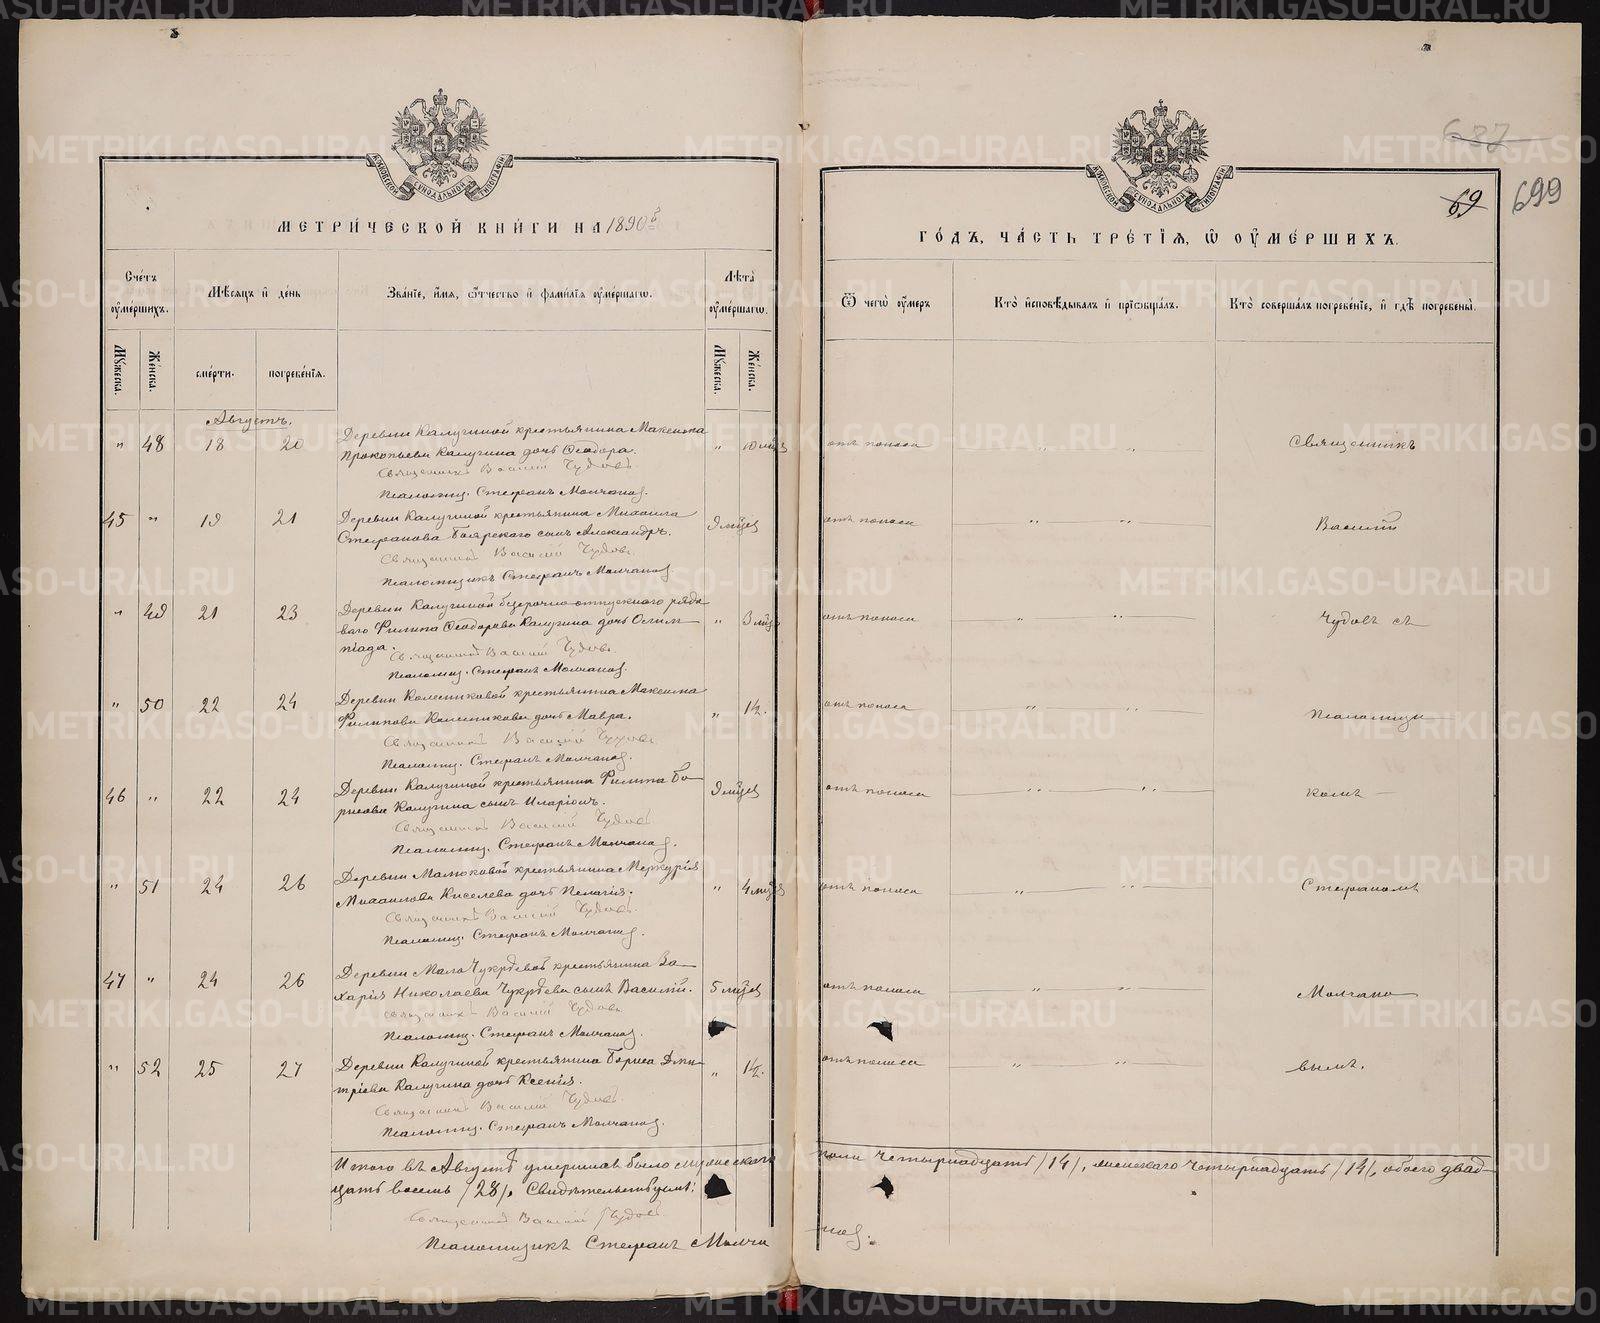 МЕТРИЧЕСКОЙ КНИГИ НА 1890 й
Счетъ умершихъ.
Мѣсяцъ и день
Званіе, имя, отчество и фамилія умершаго.
Лѣта умершаго.
Мужеска.
Женска.
смерти.
погребенія.
Мужеска.
Женска.
Августъ.
" 48 18 20 Деревни Калугиной крестьянина Максима " 10 мѣсц
Прокопьева Калугина дочь Ѳеодора.
Священникъ Василій Чудовъ
Псаломщ. Стефанъ Молчановъ.
45 " 19 21 Деревни Калугиной крестьянина Михаила 9 мѣсц
Стефанова Боярскаго сынъ Александръ.
Священникъ Василій Чудовъ
Псаломщикъ Стефанъ Молчановъ.
" 49 21 23 Деревни Калугиной безсрочно-отпускного рядо-
ваго Филипа Ѳеодорова Калугина дочь Олим- " 3 мѣсц
піада.
Священникъ Василій Чудовъ
Псаломщ. Стефанъ Молчановъ.
" 50 22 24 Деревни Колесниковой крестьянина Максима " 1 г.
Филипова Колесникова дочь Мавра.
Священникъ Василій Чудовъ
Псаломщ. Стефанъ Молчановъ.
46 " 22 24 Деревни Калугиной крестьянина Филипа Бо- 9 мѣсц
рисова Калугина сынъ Иларіонъ.
Священникъ Василій Чудовъ
Псаломщ. Стефанъ Молчановъ.
" 51 24 26 Деревни Малюковой крестьянина Меркурія " 4 мѣсц
Михаилова Киселева дочь Пелагія.
Священникъ Василій Чудовъ
Псаломщ. Стефанъ Молчановъ.
47 " 24 26 Деревни Мало Чукрѣевой крестьянина За-
харія Николаева Чукрѣева сынъ Василій. 5 мѣсц
Священникъ Василій Чудовъ
Псаломщ. Стефанъ Молчановъ.
" 52 25 27 Деревни Калугиной крестьянина Бориса Дми- " 1 г.
тріева Калугина дочь Ксенія.
Священникъ Василій Чудовъ
Псаломщ. Стефанъ Молчановъ.
Итого въ Августѣ умершихъ было мужескаго
цать восемь /28/. Свидѣтельствуемъ:
Священникъ Василій Чудовъ
Псаломщикъ Стефанъ Молча
687
69 699
ГОДЪ, ЧАСТЬ ТРЕТІЯ, Ѡ УМЕРШИХЪ.
Ѿ чего умеръ
Кто исповѣдывалъ и пріобщалъ.
Кто совершалъ погребеніе, и гдѣ погребены.
отъ поноса " " Священникъ
отъ поноса " " Василій
отъ поноса " " Чудовъ съ
отъ поноса " " псаломщи
отъ поноса " " комъ
отъ поноса " " Стефаномъ
отъ поноса " " Молчано
отъ поноса " " вымъ.
пола четырнадцать /14/, женскаго четырнадцать /14/, обоего двад-
новъ.
АКИМОВСКОЙ СИНОДАЛЬНОЙ ТИПОГРАФІИ
METRIKI.GASO-URAL.RU